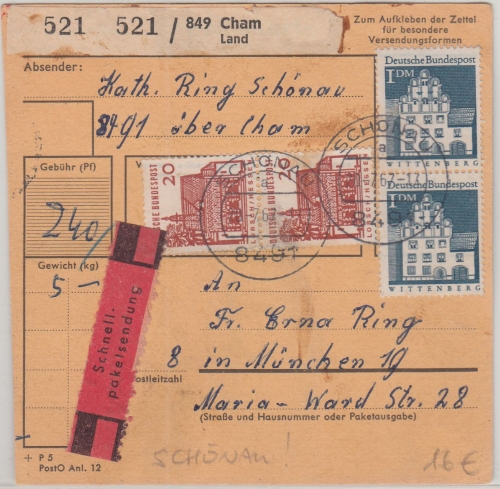 521 521 / 849 Cham
Land
Zum Aufkleben der Zettel
für besondere
Versendungsformen
Absender:
Kath. Ring Schönau
8491 über Cham
Deutsche Bundespost
1 DM
WITTENBERG
Deutsche Bundespost
1 DM
WITTENBERG
DEUTSCHE BUNDESPOST
20
LORSCH/HESSEN
DEUTSCHE BUNDESPOST
20
LORSCH/HESSEN
SCHÖNAU
a
8491
SCHÖNAU
a
8491
Gebühr (Pf)
240
Gewicht (kg)
5 –
Schnell-
paketsendung
An
Fr. Erna Ring
8 in München 19
Postleitzahl
Maria-Ward Str. 28
(Straße und Hausnummer oder Paketausgabe)
+ P 5
PostO Anl. 12
SCHÖNAU!
16 €